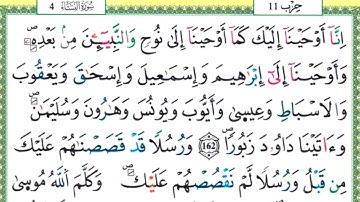 حِزْب 11 سُورَةُ النِّسَاء 4
اِنَّآ أَوْحَيْنَآ إِلَيْكَ كَمَآ أَوْحَيْنَآ إِلَىٰ نُوحٍ وَالنَّبِيٓـِٕينَ مِنۢ بَعْدِهِۦ
وَأَوْحَيْنَآ إِلَىٰٓ إِبْرَٰهِيمَ وَإِسْمَٰعِيلَ وَإِسْحَٰقَ وَيَعْقُوبَ
وَالَاسْبَاطِ وَعِيسَىٰ وَأَيُّوبَ وَيُونُسَ وَهَٰرُونَ وَسُلَيْمَٰنَ
وَءَاتَيْنَا دَاوُۥدَ زَبُورًا 162 وَرُسُلًا قَدْ قَصَصْنَٰهُمْ عَلَيْكَ
مِن قَبْلُ وَرُسُلًا لَّمْ نَقْصُصْهُمْ عَلَيْكَ وَكَلَّمَ اَللَّهُ مُوسَىٰ